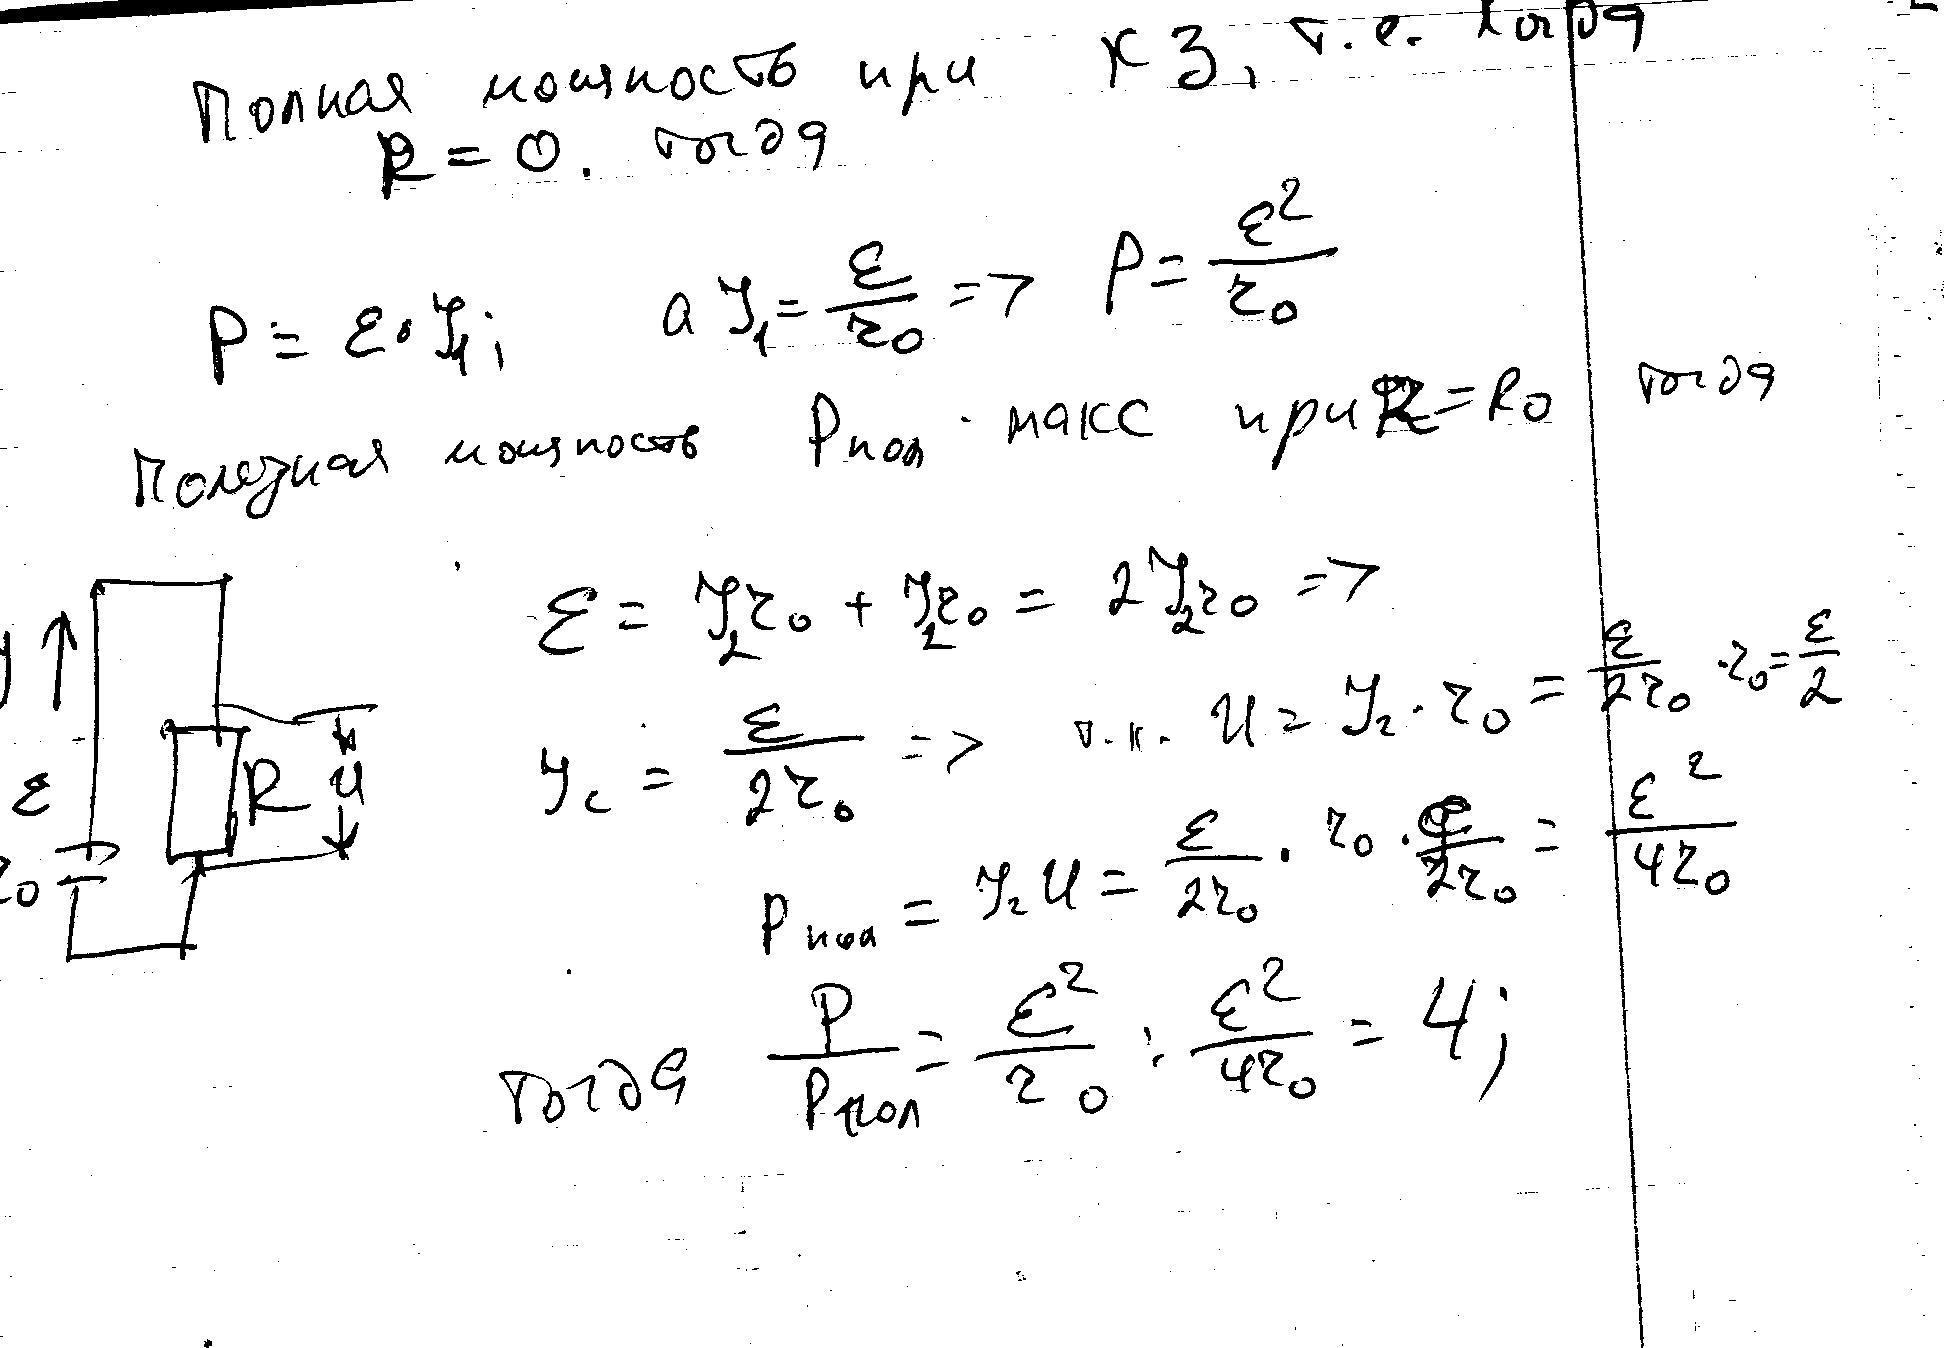 Полная мощность при КЗ, т.е. когда
R = 0. тогда
P = ε·I₁; а I₁ = ε/r₀ => P = ε²/r₀
Полезная мощность Pпол. макс при R = R₀ тогда
ε = I₂r₀ + I₂r₀ = 2I₂r₀ =>
I₂ = ε/2r₀ => т.к. U = I₂·r₀ = ε/2r₀ ·r₀ = ε/2
Pпол = I₂U = ε/2r₀ · r₀ · ε/2r₀ = ε²/4r₀
тогда P/Pпол = ε²/r₀ : ε²/4r₀ = 4;
I
ε
r₀
R
U